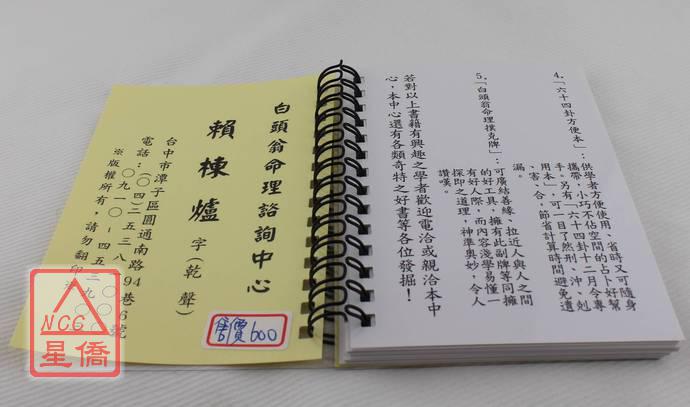 4.「六十四卦方便本」：供學者方便使用、省時又可隨身
攜帶，小巧不佔空間的占卜好幫
手，另有「六十四卦十二月令專
用本」，可一目了然刑、沖、剋
、害、合，節省計算時間避免遺
漏。
5.「白頭翁命理撲克牌」：可廣結善緣、拉近人與人之間
的好工具，擁有此副牌等同擁
有好人際，而內容淺學易懂一
探即之道理，神準奧妙，令人
讚嘆。
若對以上書籍有興趣之學者歡迎電洽或親洽本中
心，本中心還有各類奇特之好書等各位發掘！
白頭翁命理諮詢中心
賴棟爐 字（乾聲）
台中市潭子區圓通南路94巷6號
電話：（○四）二五三八
○九一○－四五三九
※版權所有，請勿翻印
售價600
NCC
星僑